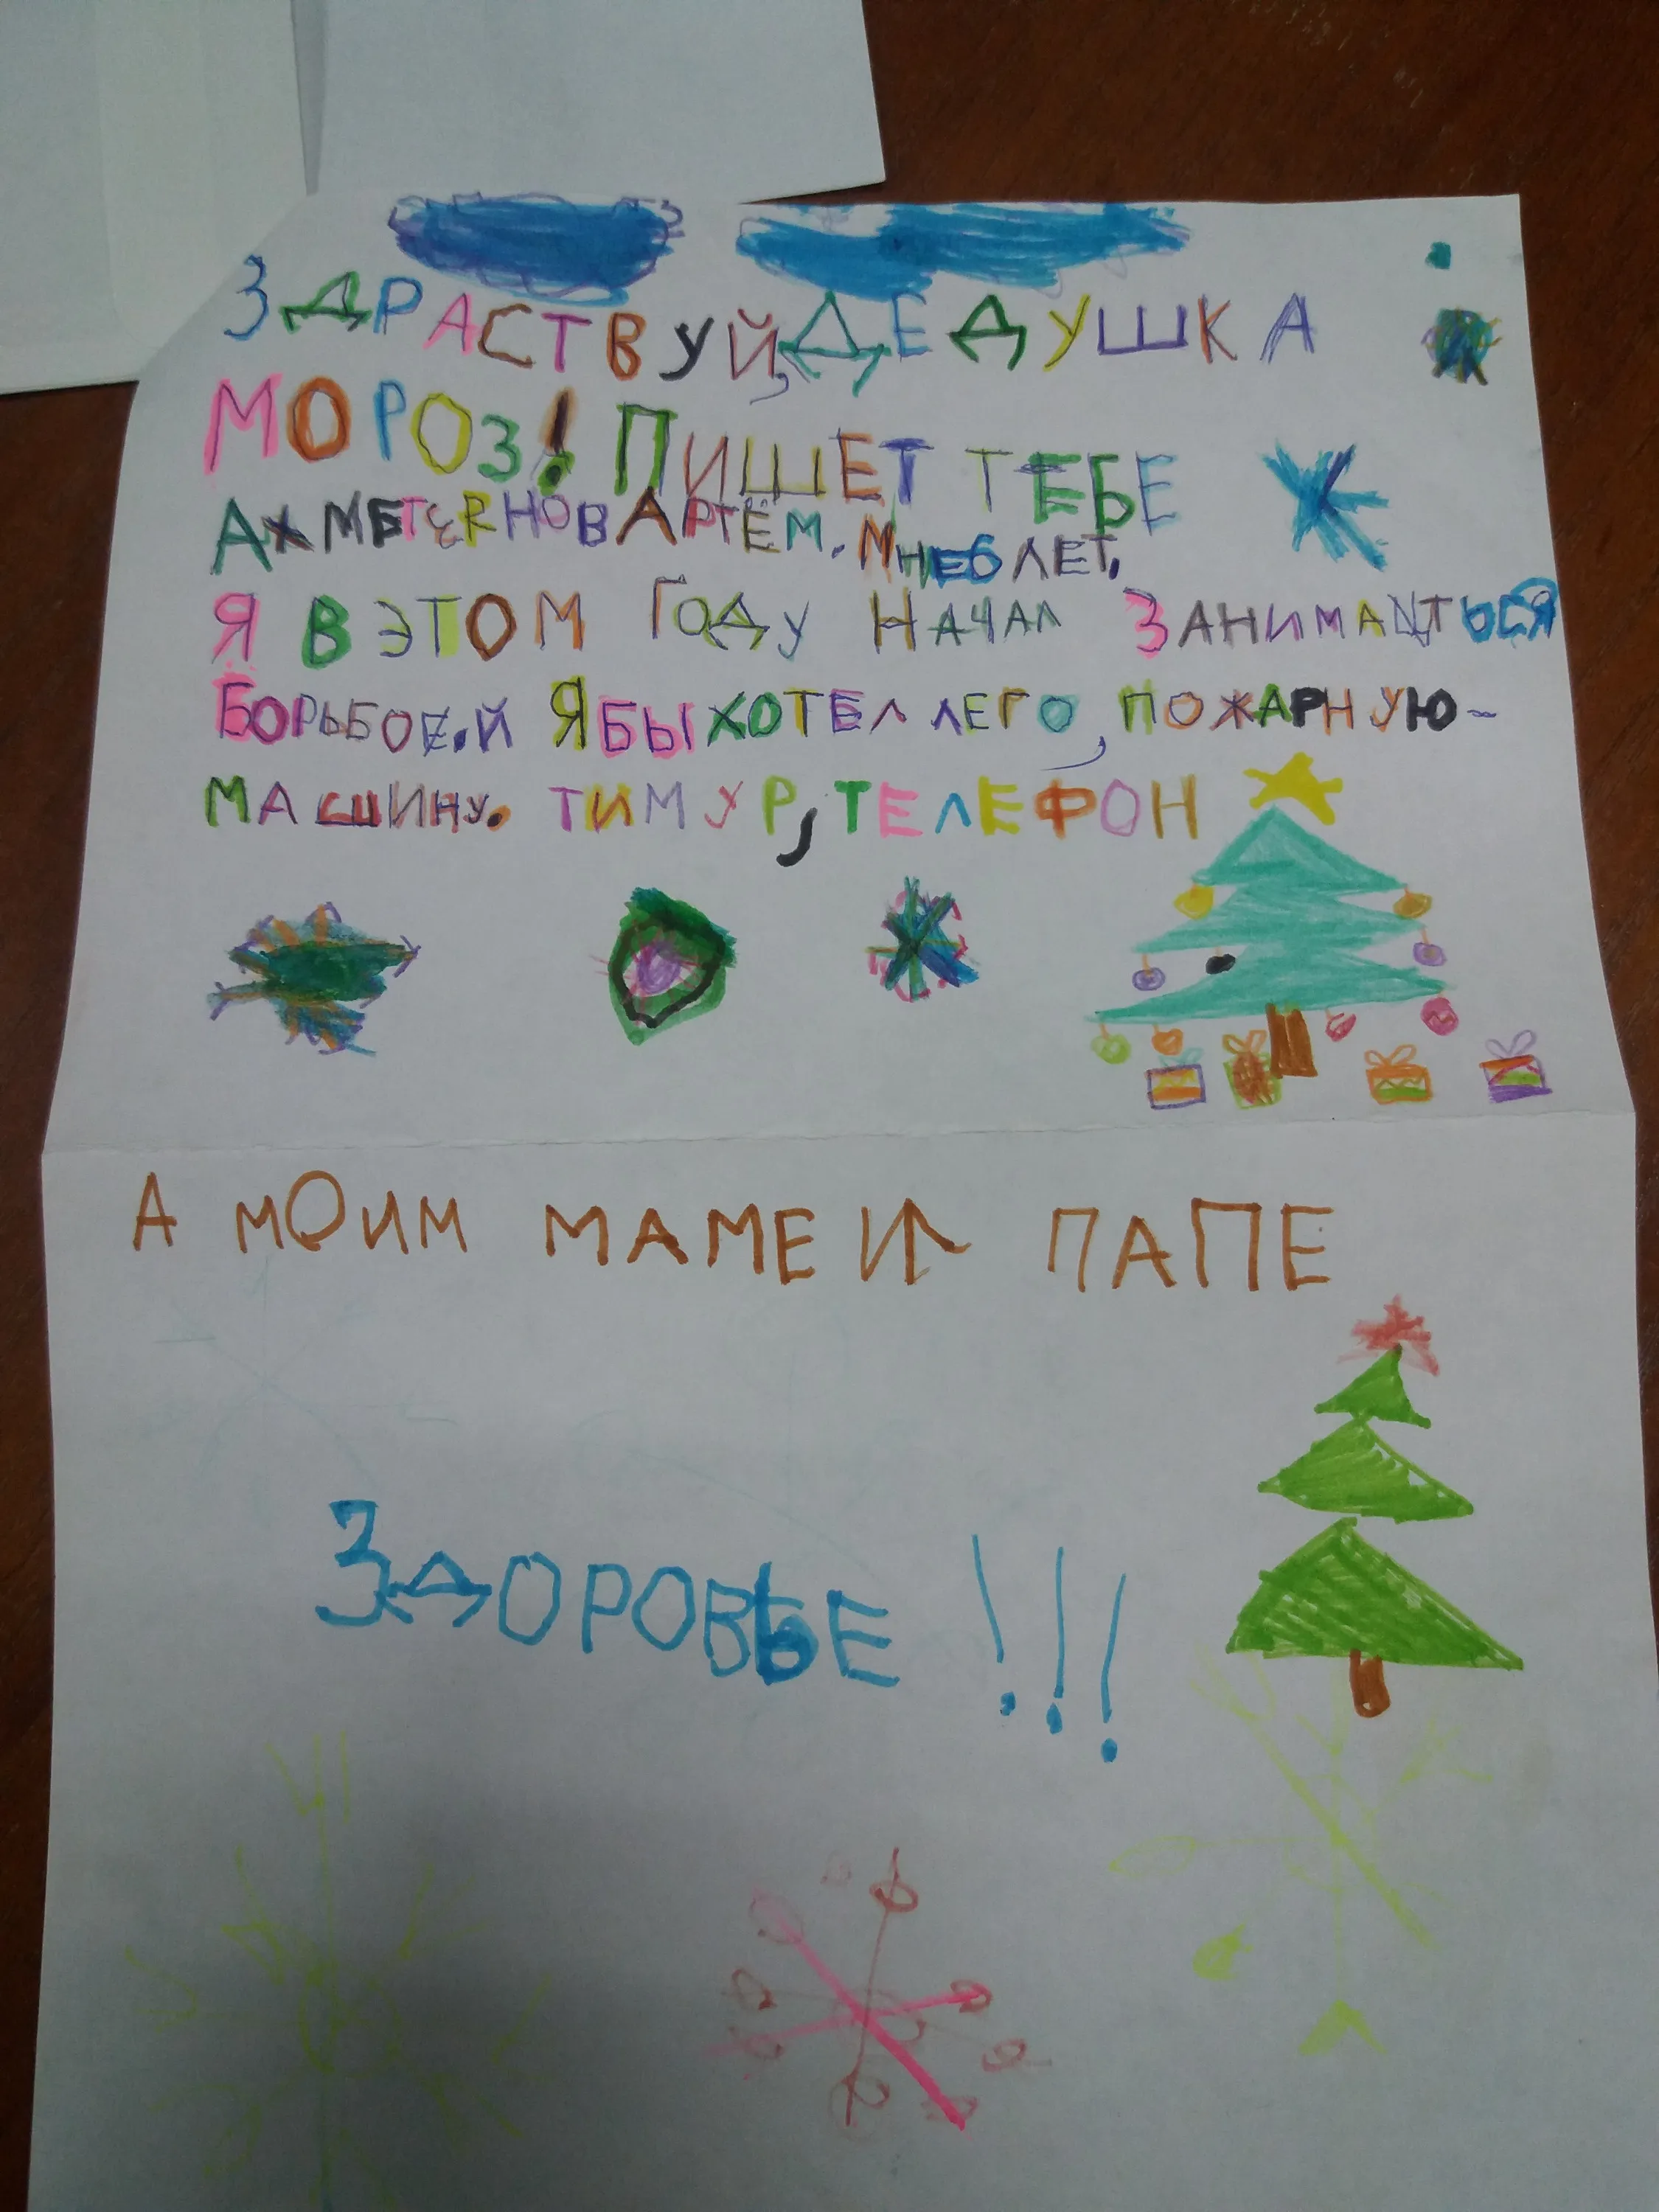 ЗДРАСТВУЙ, ДЕДУШКА
МОРОЗ! ПИШЕТ ТЕБЕ
АРТЁМ. МНЕ 6 ЛЕТ.
Я В ЭТОМ ГОДУ НАЧАЛ ЗАНИМАТЬСЯ
БОРЬБОЕ.Й Я БЫ ХОТЕЛ ЛЕГО, ПОЖАРНУЮ-
МАШИНУ. ТИМУР, ТЕЛЕФОН
А МОИМ МАМЕ И ПАПЕ
ЗДОРОВЬЕ!!!